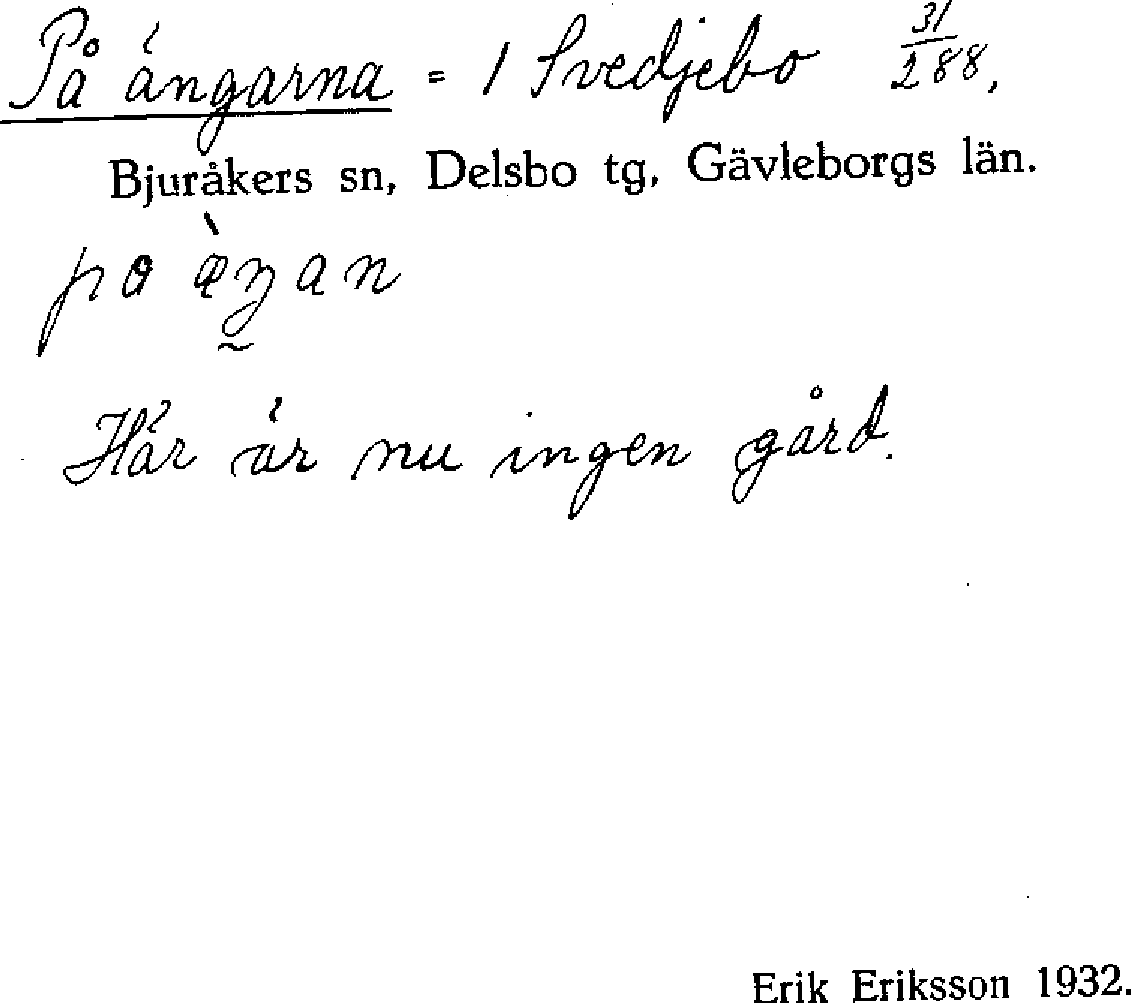 På ängarna = 1 Svedjebo 31/288,
Bjuråkers sn, Delsbo tg, Gävleborgs län.
på æ̀ŋan
Här är nu ingen gård.
Erik Eriksson 1932.